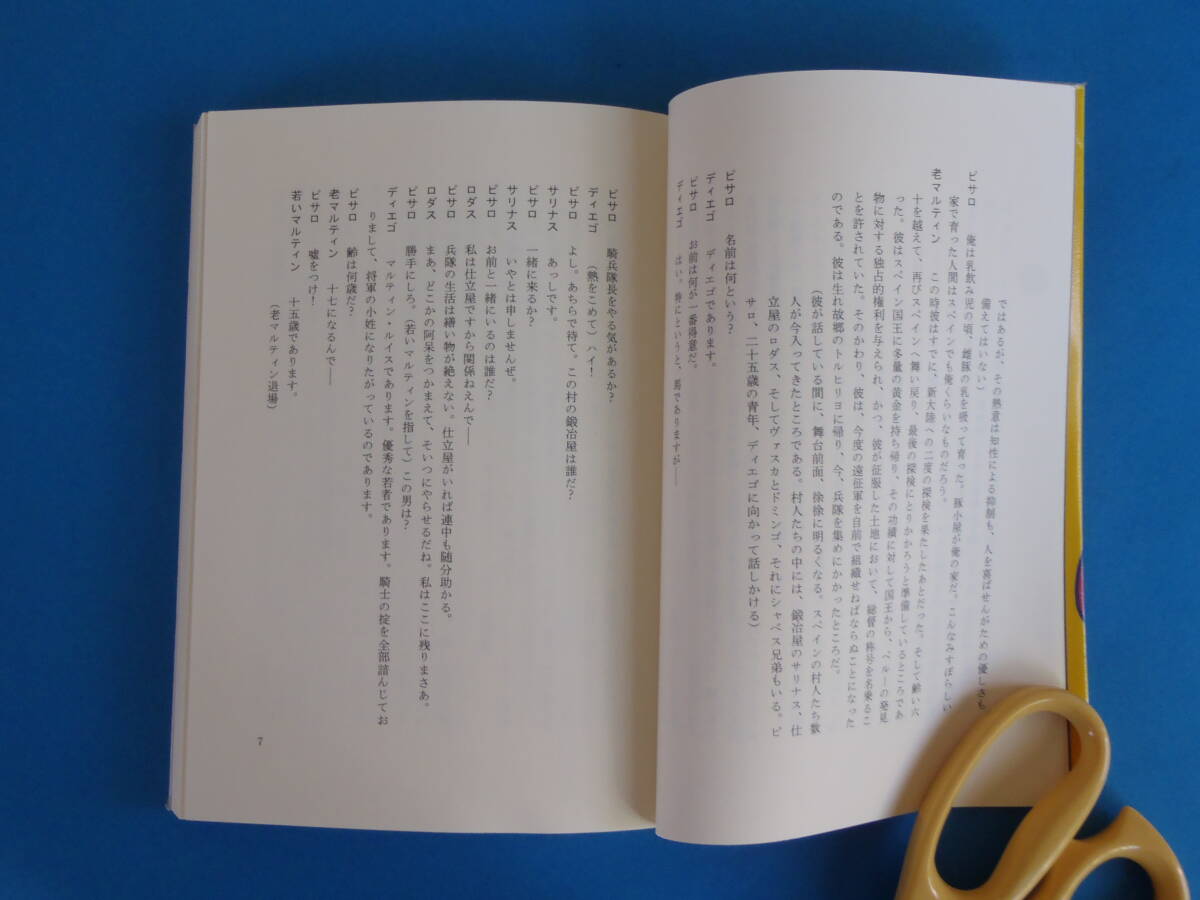 ではあるが、その熱意は知性による抑制も、人を喜ばせんがための優しさも
備えてはいない）
ピサロ　俺は乳飲み児の頃、雌豚の乳を吸って育った。豚小屋が俺の家だ。こんなみすぼらしい
家で育った人間はスペインでも俺くらいなものだろう。
老マルティン　この時彼はすでに、新大陸への二度の探検を果たしたあとだった。そして齢い六
十を越えて、再びスペインへ舞い戻り、最後の探検にとりかかろうと準備しているところであ
った。彼はスペイン国王に多量の黄金を持ち帰り、その功績に対して国王から、ペルーの発見
物に対する独占的権利を与えられ、かつ、彼が征服した土地において、総督の称号を名乗るこ
とを許されていた。そのかわり、彼は、今度の遠征軍を自前で組織せねばならぬことになった
のである。彼は生れ故郷のトルヒリヨに帰り、今、兵隊を集めにかかったところだ。
（彼が話している間に、舞台前面、徐徐に明るくなる。スペインの村人たち数
人が今入ってきたところである。村人たちの中には、鍛冶屋のサリナス、仕
立屋のロダス、そしてヴァスカとドミンゴ、それにシャベス兄弟もいる。ピ
サロ、二十五歳の青年、ディエゴに向かって話しかける）
ピサロ　名前は何という？
ディエゴ　ディエゴであります。
ピサロ　お前は何が一番得意だ。
ディエゴ　はい。特にというと、馬でありますが――
ピサロ　騎兵隊長をやる気があるか？
ディエゴ　（熱をこめて）ハイ！
ピサロ　よし。あちらで待て。この村の鍛冶屋は誰だ？
サリナス　あっしです。
ピサロ　一緒に来るか？
サリナス　いやとは申しませんぜ。
ピサロ　お前と一緒にいるのは誰だ？
ロダス　私は仕立屋ですから関係ねえんで――
ピサロ　兵隊の生活は繕い物が絶えない。仕立屋がいれば連中も随分助かる。
ロダス　まあ、どこかの阿呆をつかまえて、そいつにやらせるだね。私はここに残りまさあ。
ピサロ　勝手にしろ。（若いマルティンを指して）この男は？
ディエゴ　マルティン・ルイスであります。優秀な若者であります。騎士の掟を全部諳んじてお
りまして、将軍の小姓になりたがっているのであります。
ピサロ　齢は何歳だ？
老マルティン　十七になるんで――
ピサロ　嘘をつけ！
若いマルティン　十五歳であります。
（老マルティン退場）
7